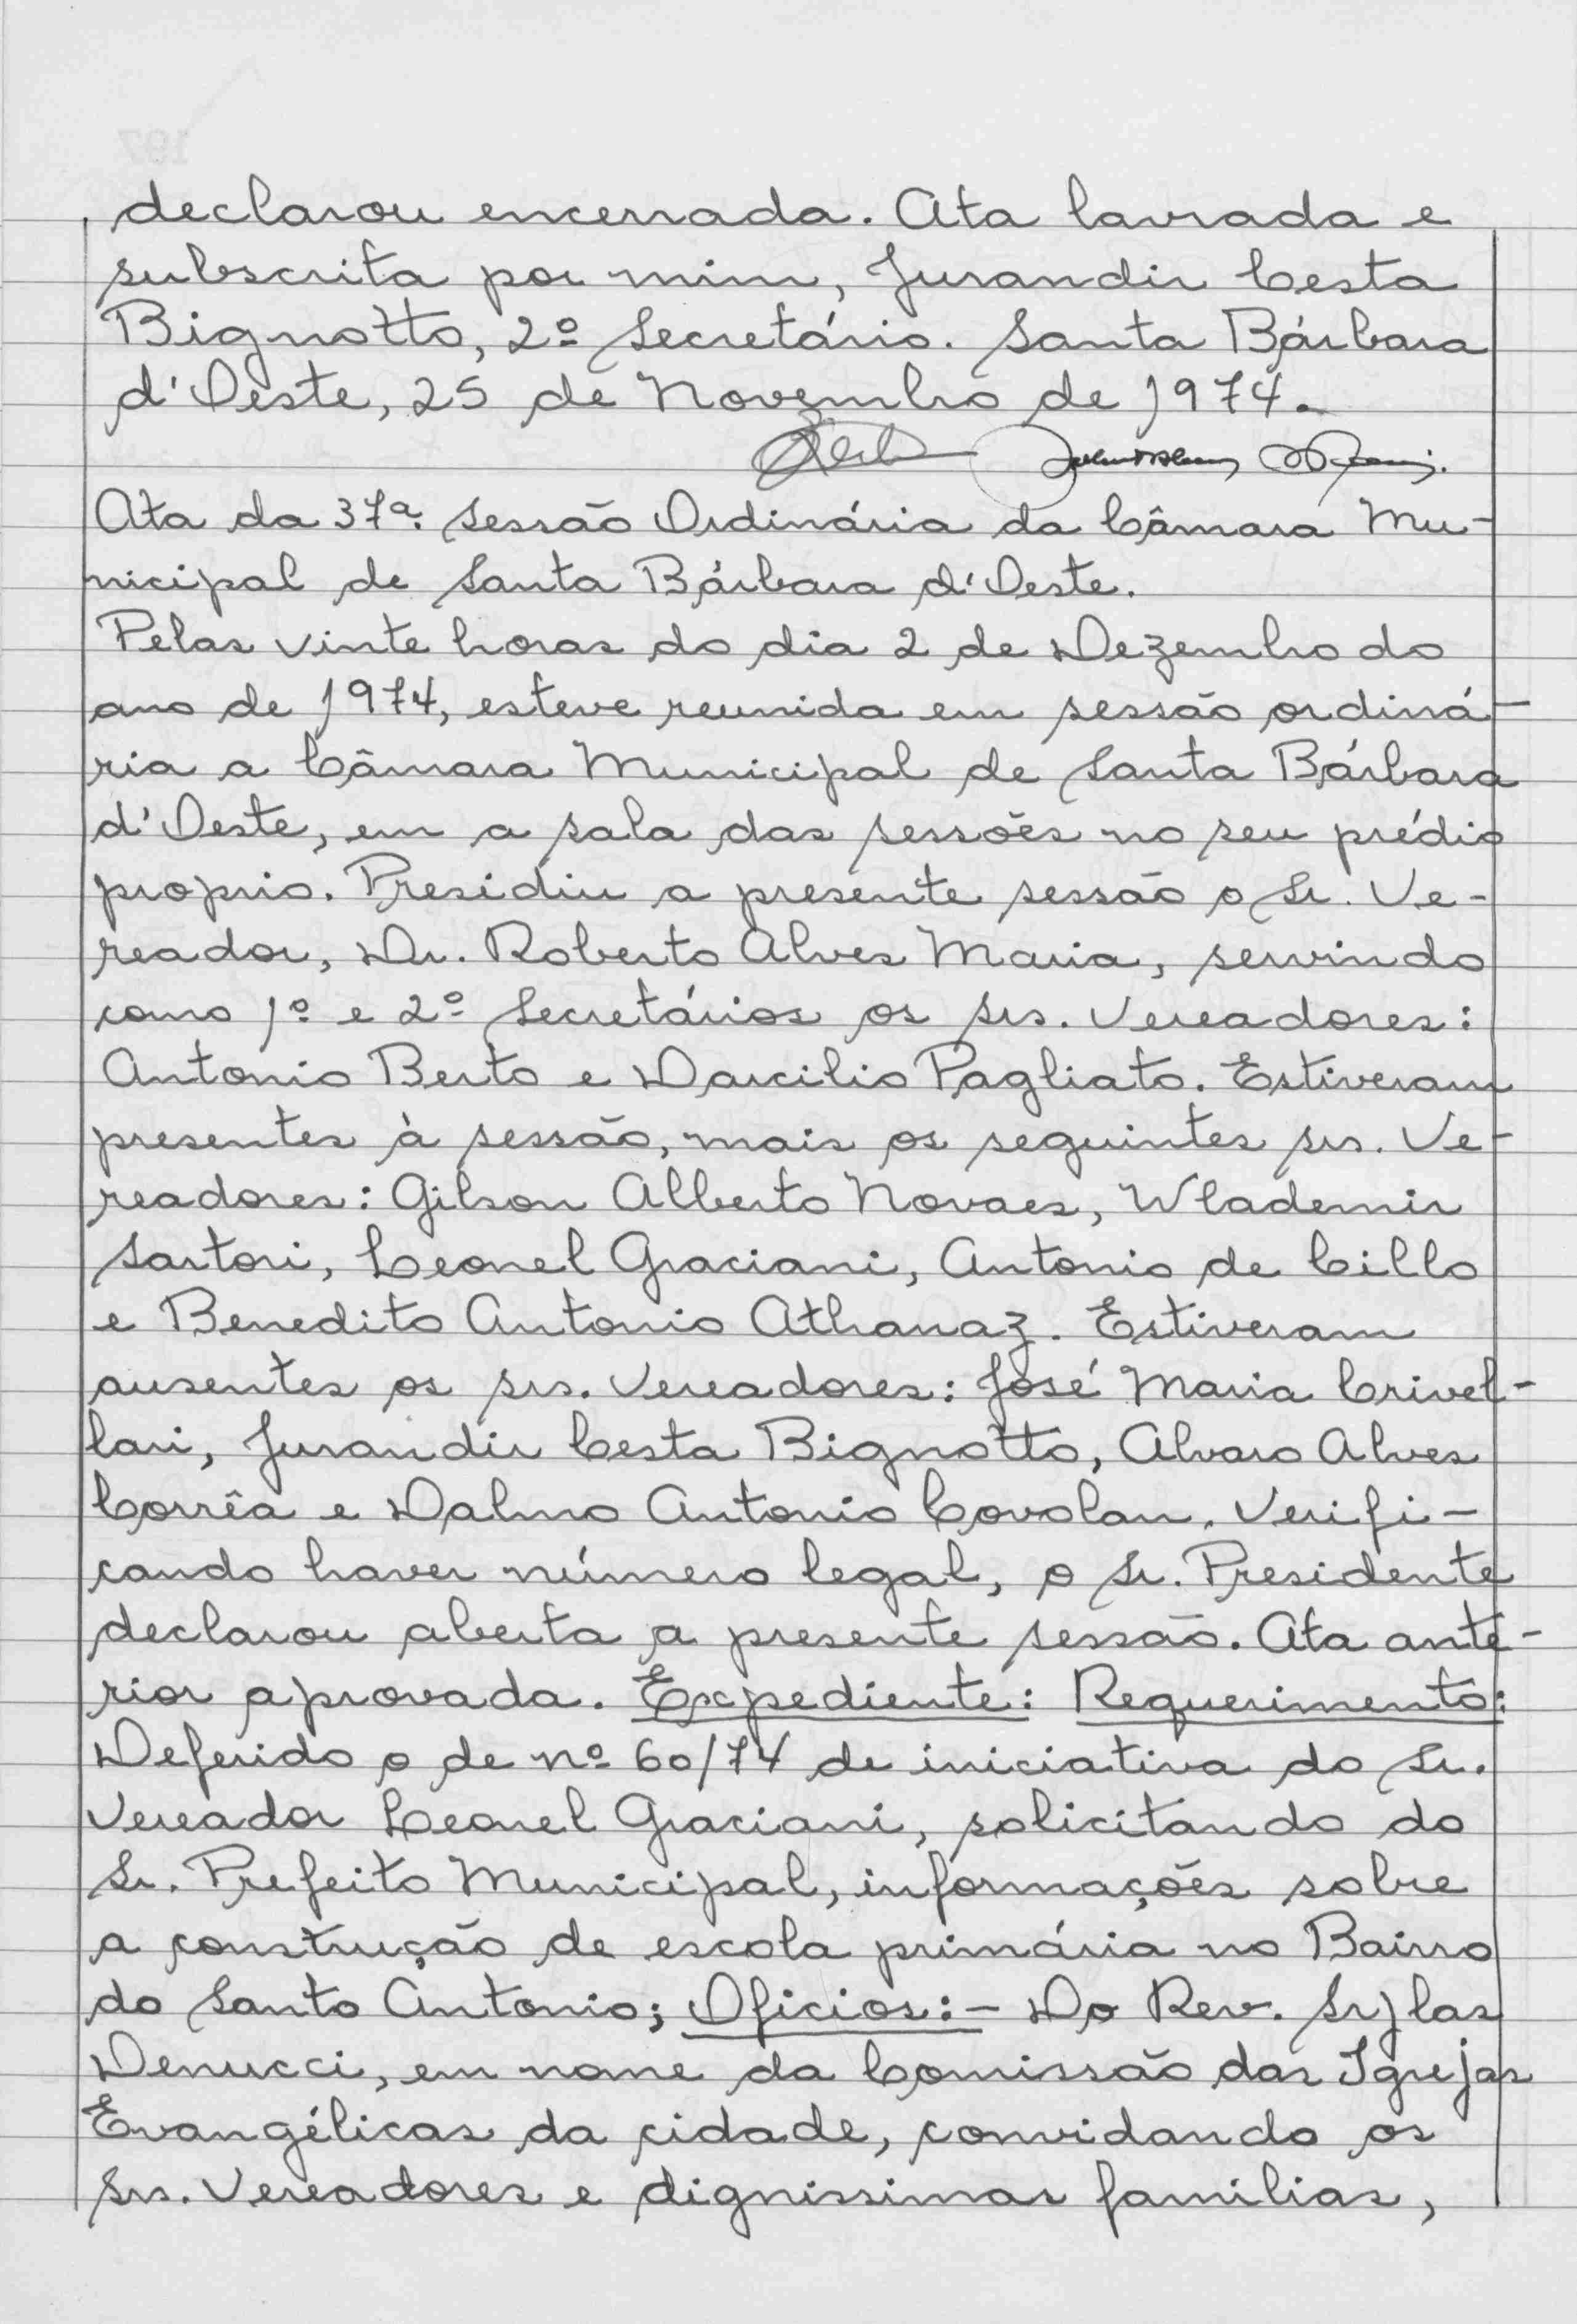 declarou encerrada. Ata lavrada e
subscrita por mim, Jurandir Cesta
Bignotto, 2º Secretário. Santa Bárbara
d'Oeste, 25 de Novembro de 1974.
Ata da 37ª. Sessão Ordinária da Câmara Mu-
nicipal de Santa Bárbara d'Oeste.
Pelas vinte horas do dia 2 de Dezembro do
ano de 1974, esteve reunida em sessão ordiná-
ria a Câmara Municipal de Santa Bárbara
d'Oeste, em a sala das sessões no seu prédio
proprio. Presidiu a presente sessão o Sr. Ve-
reador, Dr. Roberto Alves Maria, servindo
como 1º e 2º Secretários os srs. Vereadores:
Antonio Berto e Darcilio Pagliato. Estiveram
presentes à sessão, mais os seguintes srs. Ve-
readores: Gilson Alberto Novaes, Wlademir
Sartori, Leonel Graciani, Antonio de Cillo
e Benedito Antonio Athanaz. Estiveram
ausentes os srs. Vereadores: José Maria Crivel-
lari, Jurandir Cesta Bignotto, Alvaro Alves
Corrêa e Dalmo Antonio Covolan. Verifi-
cando haver número legal, o Sr. Presidente
declarou aberta a presente sessão. Ata ante-
rior aprovada. Expediente: Requerimento:
Deferido o de nº 60/74 de iniciativa do Sr.
Vereador Leonel Graciani, solicitando do
Sr. Prefeito Municipal, informações sobre
a construção de escola primária no Bairro
do Santo Antonio; Oficios:- Do Rev. Sylas
Denucci, em nome da Comissão das Igrejas
Evangélicas da cidade, convidando os
srs. Vereadores e digníssimas familias,